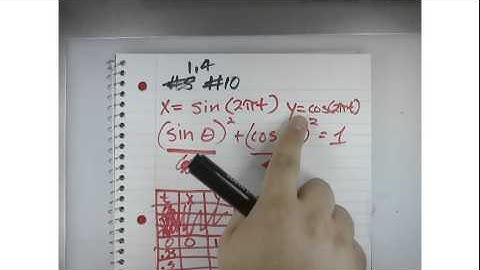 1,4
#5 #10
x = sin(2πt) y = cos(2πt)
(sin θ)² + (cos )² = 1
t x y
0 0 1
.5